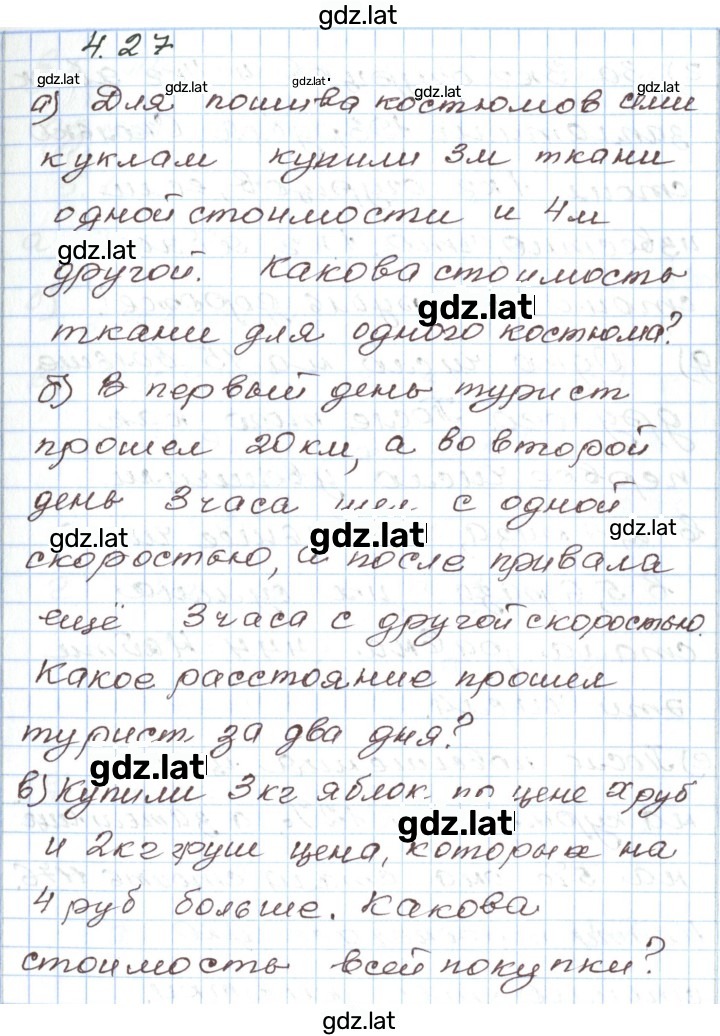 gdz.lat
4.27
gdz.lat gdz.lat gdz.lat gdz.lat gdz.lat
а) Для пошива костюмов семи
куклам купили 3м ткани
одной стоимости и 4м
gdz.lat
другой. Какова стоимость
gdz.lat
ткани для одного костюма?
б) В первый день турист
прошел 20 км, а во второй
день 3 часа шел с одной
gdz.lat gdz.lat gdz.lat
скоростью, а после привала
ещё 3 часа с другой скоростью.
Какое расстояние прошел
турист за два дня?
gdz.lat
в) Купили 3 кг яблок по цене х руб
gdz.lat
и 2 кг груш цена, которых на
4 руб больше. Какова
стоимость всей покупки?
gdz.lat